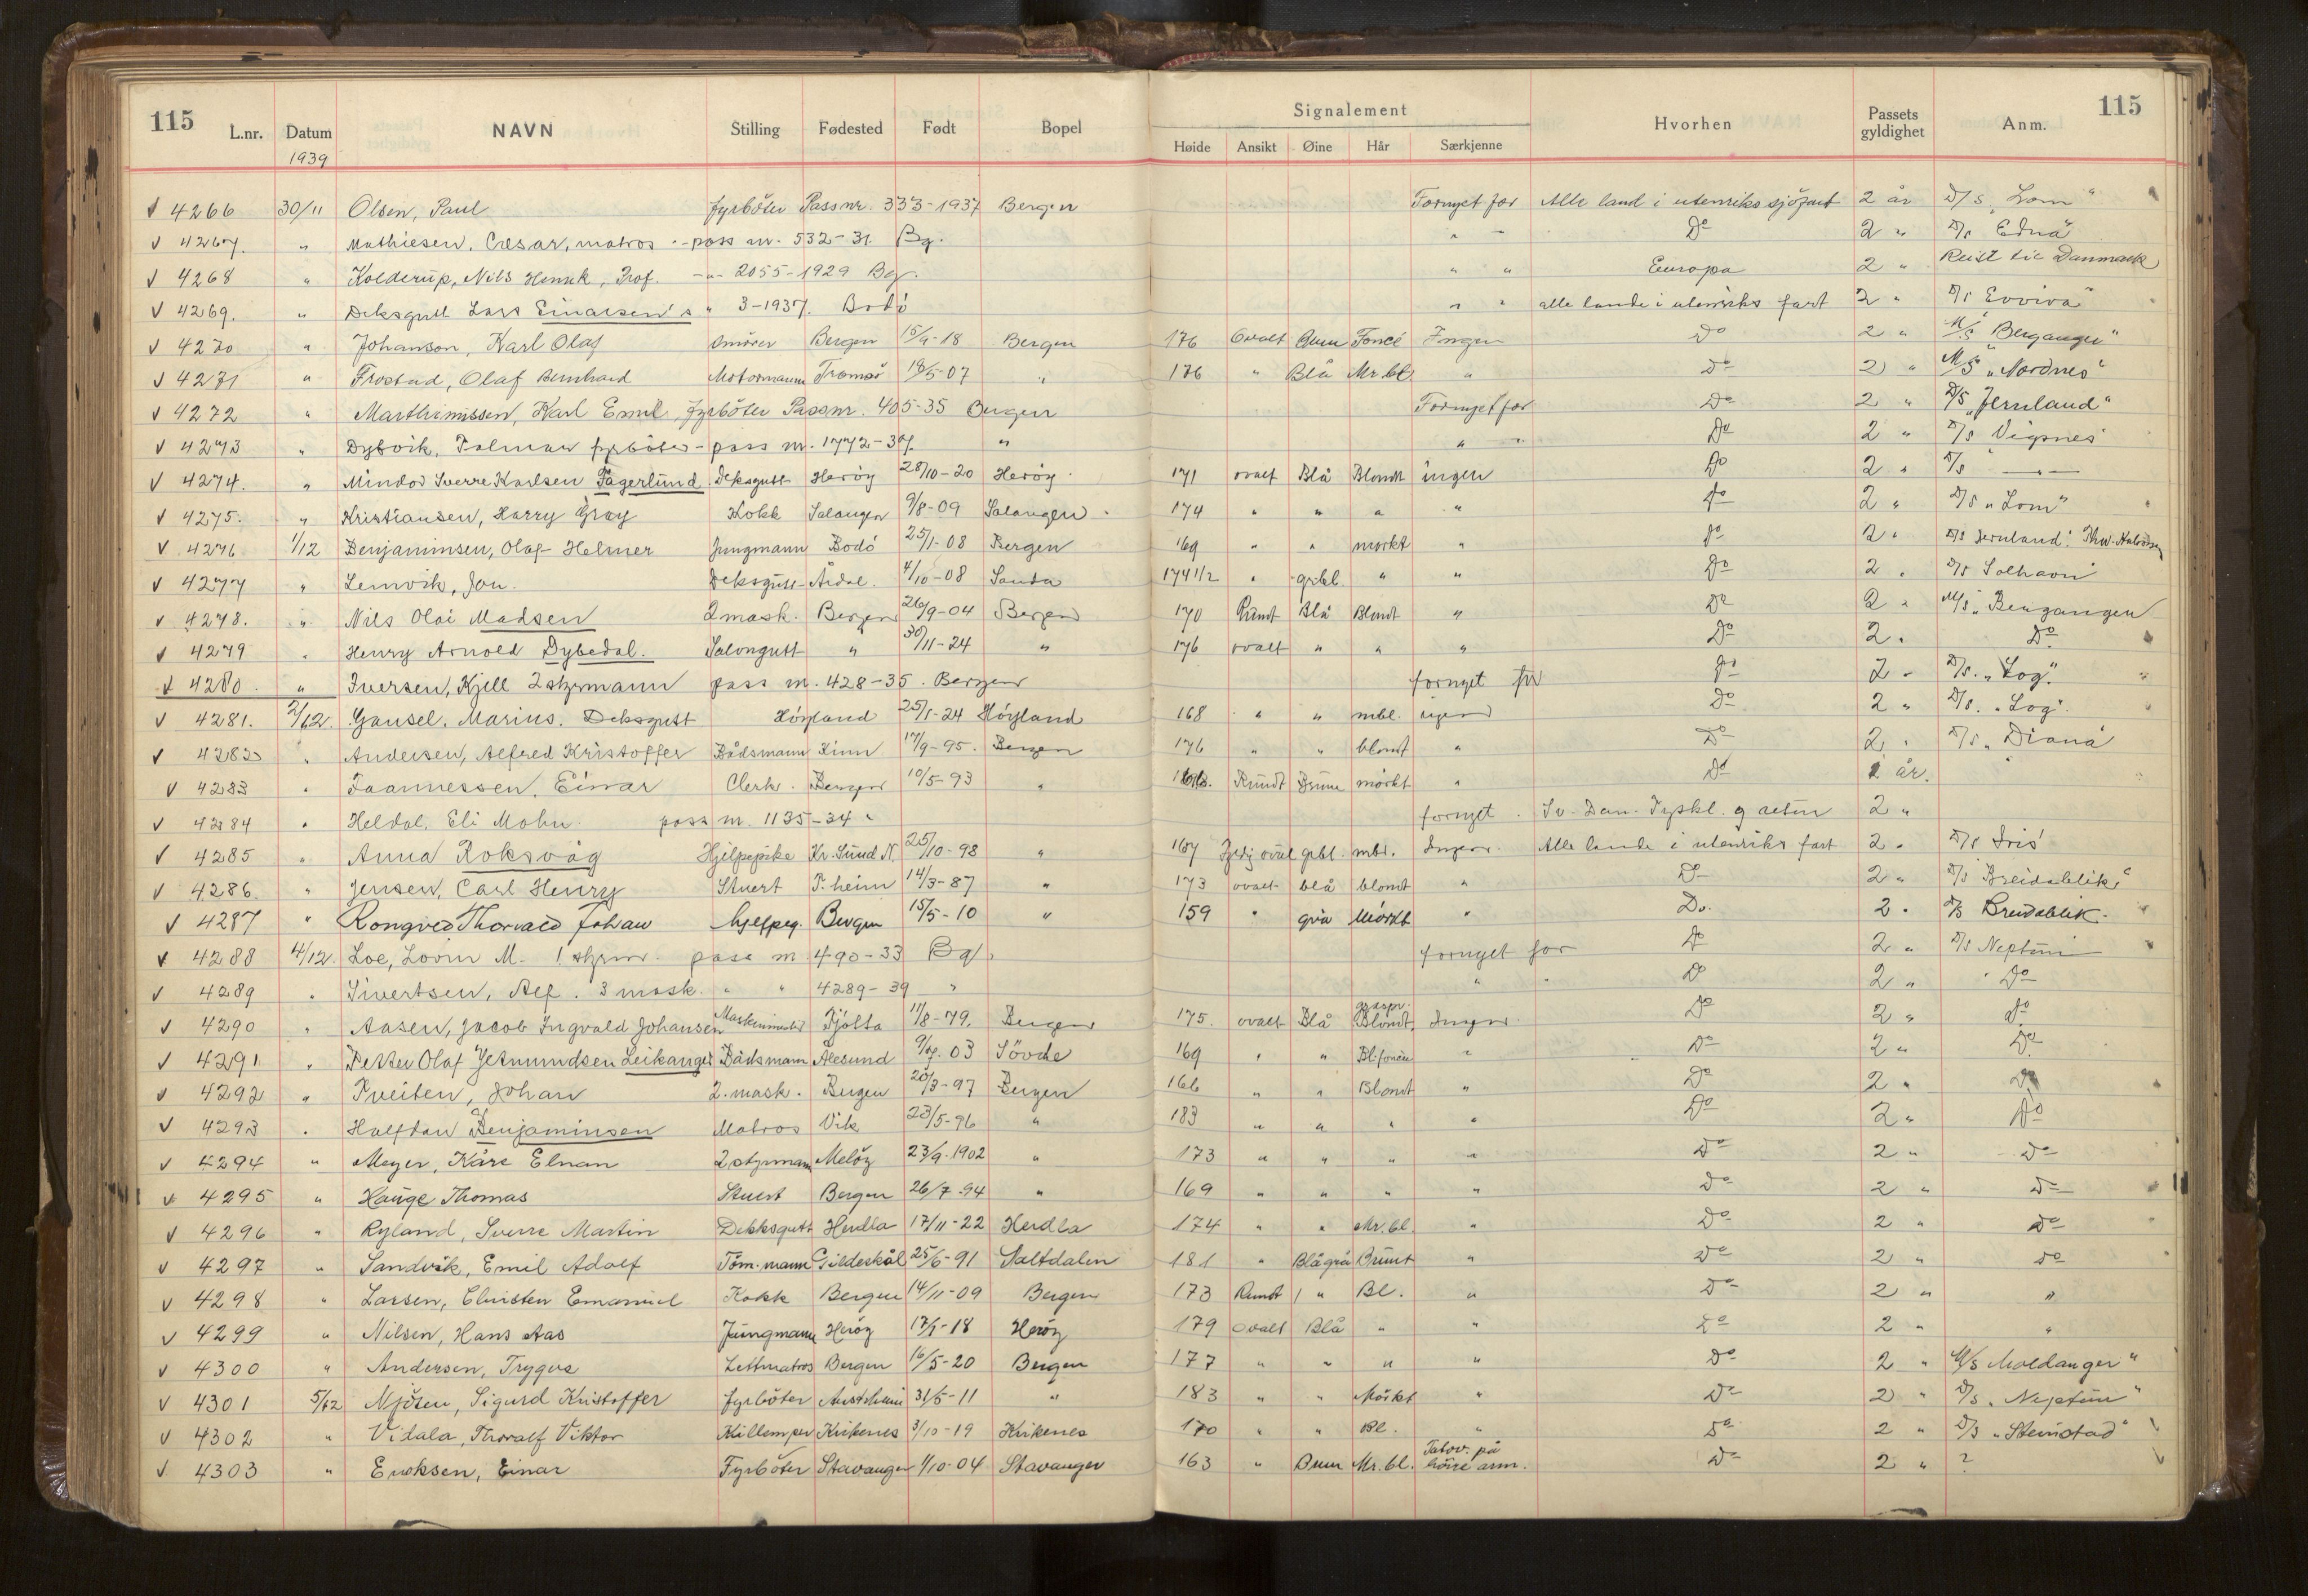 115 L.nr. Datum NAVN Stilling Fødested Født Bopel Signalement Hvorhen Passets gyldighet Anm. 115
1939 Høide Ansikt Øine Hår Særkjenne
4266 30/11 Olsen, Paul fyrböter Passnr. 333-1937 Bergen Fornyet for Alle land i utenriks sjöfart 2 år D/S "Lom"
4267. " Mathiesen, Cæsar, matros - pass nr. 532-31. Bg. " - Do 2 " D/S Edna
4268 " Kolderup, Nils Henrik, Prof. -"- 2055-1929 Bg. " " Europa 2 " Reist til Danmark
4269. " Deksgutt Lars Einarsen's " 3-1937. Bodö " " alle lande i utenriks fart 2 " D/S Evviva"
4270 " Johanson, Karl Olaf Smörer Bergen 15/9-18 Bergen 176 Ovalt Brun Ingen Do 2 " M/S "Beranger"
4271 " Frostad, Olaf Bernhard Motormann Tromsö 18/5-07 " 176 " Blå Mr.bl. " Do 2 " M/S "Nordnes"
4272 " Marthinussen, Karl Emil, fyrböter Passnr. 405-35 Bergen Fornyet for Do 2 " D/S "Jernland"
4273 " Dybvik, Tolman fyrböter - pass nr. 1772-37. " " " Do 2 " D/S Vigsnes
4274. " Mindor Sverre Karlsen Fagerlund Deksgutt Heröy 28/10-20 Heröy 171 ovalt Blå Blondt ingen Do 2 " D/S -"-
4275. " Kristiansen, Harry Gray Kokk Salangen 9/8-09 Salangen 174 " " " " do 2 " D/S "Lom"
4276 1/12 Benjaminsen, Olaf Helmer Jungmann Bodö 25/1-08 Bergen 169 " " mörkt " do 2 " D/S Jernland.
4277 " Lemvik, Jon. Deksgutt Årdal. 4/10-08 Sauda 174 1/2 " grbl. " " Do 2 " D/S Solhavn
4278. " Nils Olai Madsen 2 mask. Bergen 26/9-04 Bergen 170 Rundt Blå Blondt " Do 2 " M/S "Bergangen
4279 " Henry Arnold Dybedal. Salongutt " 30/11-24 " 176 ovalt " " " Do 2 " Do
4280. " Iversen, Kjell 2 styrmann pass nr. 428-35. Bergen fornyet for Do 2 " D/S. "Log".
4281. 2/12. Gausel, Marius. Deksgutt Höyland 25/1-24 Höyland 168 " " mbl. ingen Do 2 " D/S. "Log".
4282 " Andersen, Alfred Kristoffer Bådsmann Kinn 17/9-95. Bergen 176 " " blondt " Do 2 " D/S "Diana"
4283 " Joannessen, Einar Clerk. Bergen 10/5-93 " Rundt Brune mörkt " Do 2 år.
4284 " Heldal, Eli Mohn pass nr. 1135-34 " fornyet. Sv. Dan. Tyskl. og retur 2 "
4285 " Anna Roksvåg Hjelpepike Kr. Sund N. 25/10-98 " 167 ovalt grbl. mbl. Ingen. Alle lande i utenriks fart 2 " D/S Iris
4286. " Jensen, Carl Henry Stuert T.heim 14/3-87 " 173 ovalt blå blondt " Do 2 " D/S Breidablik"
4287 " Rongved Thorvald Johan hjelpeg. Bergen 15/5-10 " 159 " grå Mörkt " Do. 2 " D/S Breidablik.
4288 4/12. Loe, Lovin M. 1 styrm. pass nr. 490-33 Bg. fornyet for Do 2 " D/S Neptun
4289 " Sivertsen, Alf. 3 mask. " " 4289-39 " " " Do 2 " " Do
4290 " Aasen, Jacob Ingvald Johansen Maskinmester Tjötta 11/8-79. Bergen 175. ovalt Blå gråspr. Blondt, Ingen. Do 2 " do
4291 " Petter Olaf Jetmundsen Leikanger Bådsmann Ålesund 03 Sövde 169 " " " Do 2 " Do
4292 " Tveiten, Johan 2. mask. Bergen 20/3-97 Bergen 166 " " Blondt " Do 2 " Do
4293 " Halfdan Benjaminsen Matros Vik 23/5-96 " 183 " " " " Do 2 " Do
4294 " Meyer, Kåre Elnan 2 styrmann Melöy 23/9-1902 " 173 " " " " Do 2 " Do
4295 " Hauge Thomas Stuert Bergen 26/7-94 " 169 " " " " Do 2 " Do
4296 " Ryland, Sverre Martin Dekksgutt Herdla 17/11-22 Herdla 174 " " Mr.bl. " Do 2 " do
4297 " Sandvik, Emil Adolf Töm.mann Gildeskål 25/6-91 Saltdalen 181 " Blågrå Brunt " Do 2 " do
4298 " Larsen, Christen Emanuel Kokk Bergen 14/11-09 Bergen 173 Rundt " Bl. " Do 2 " "
4299 " Nilsen, Hans Aas Jungmann Heröy 17/1-18 Heröy 179 Ovalt Blå " " Do 2 " "
4300 " Andersen, Trygve Lettmatros Bergen 16/5-20 Bergen 177 " " " " Do 2 " M/S Moldanger"
4301 5/12 Njösen, Sigurd Kristoffer Fyrböter Austrheim 31/5-11 " 183 " " Mörkt " Do 2 " D/S. "Neptun"
4302 " Vidala, Thoralf Viktor Kullemper Kirkenes 3/10-19 Kirkenes 170 " " Bl. " Do 2 " D/S "Steinstad"
4303 " Eriksen, Einar Fyrböter Stavanger 1/10-04 Stavanger 163 " Brun Mr.bl. Tatov. på höire arm. Do 2 " ?